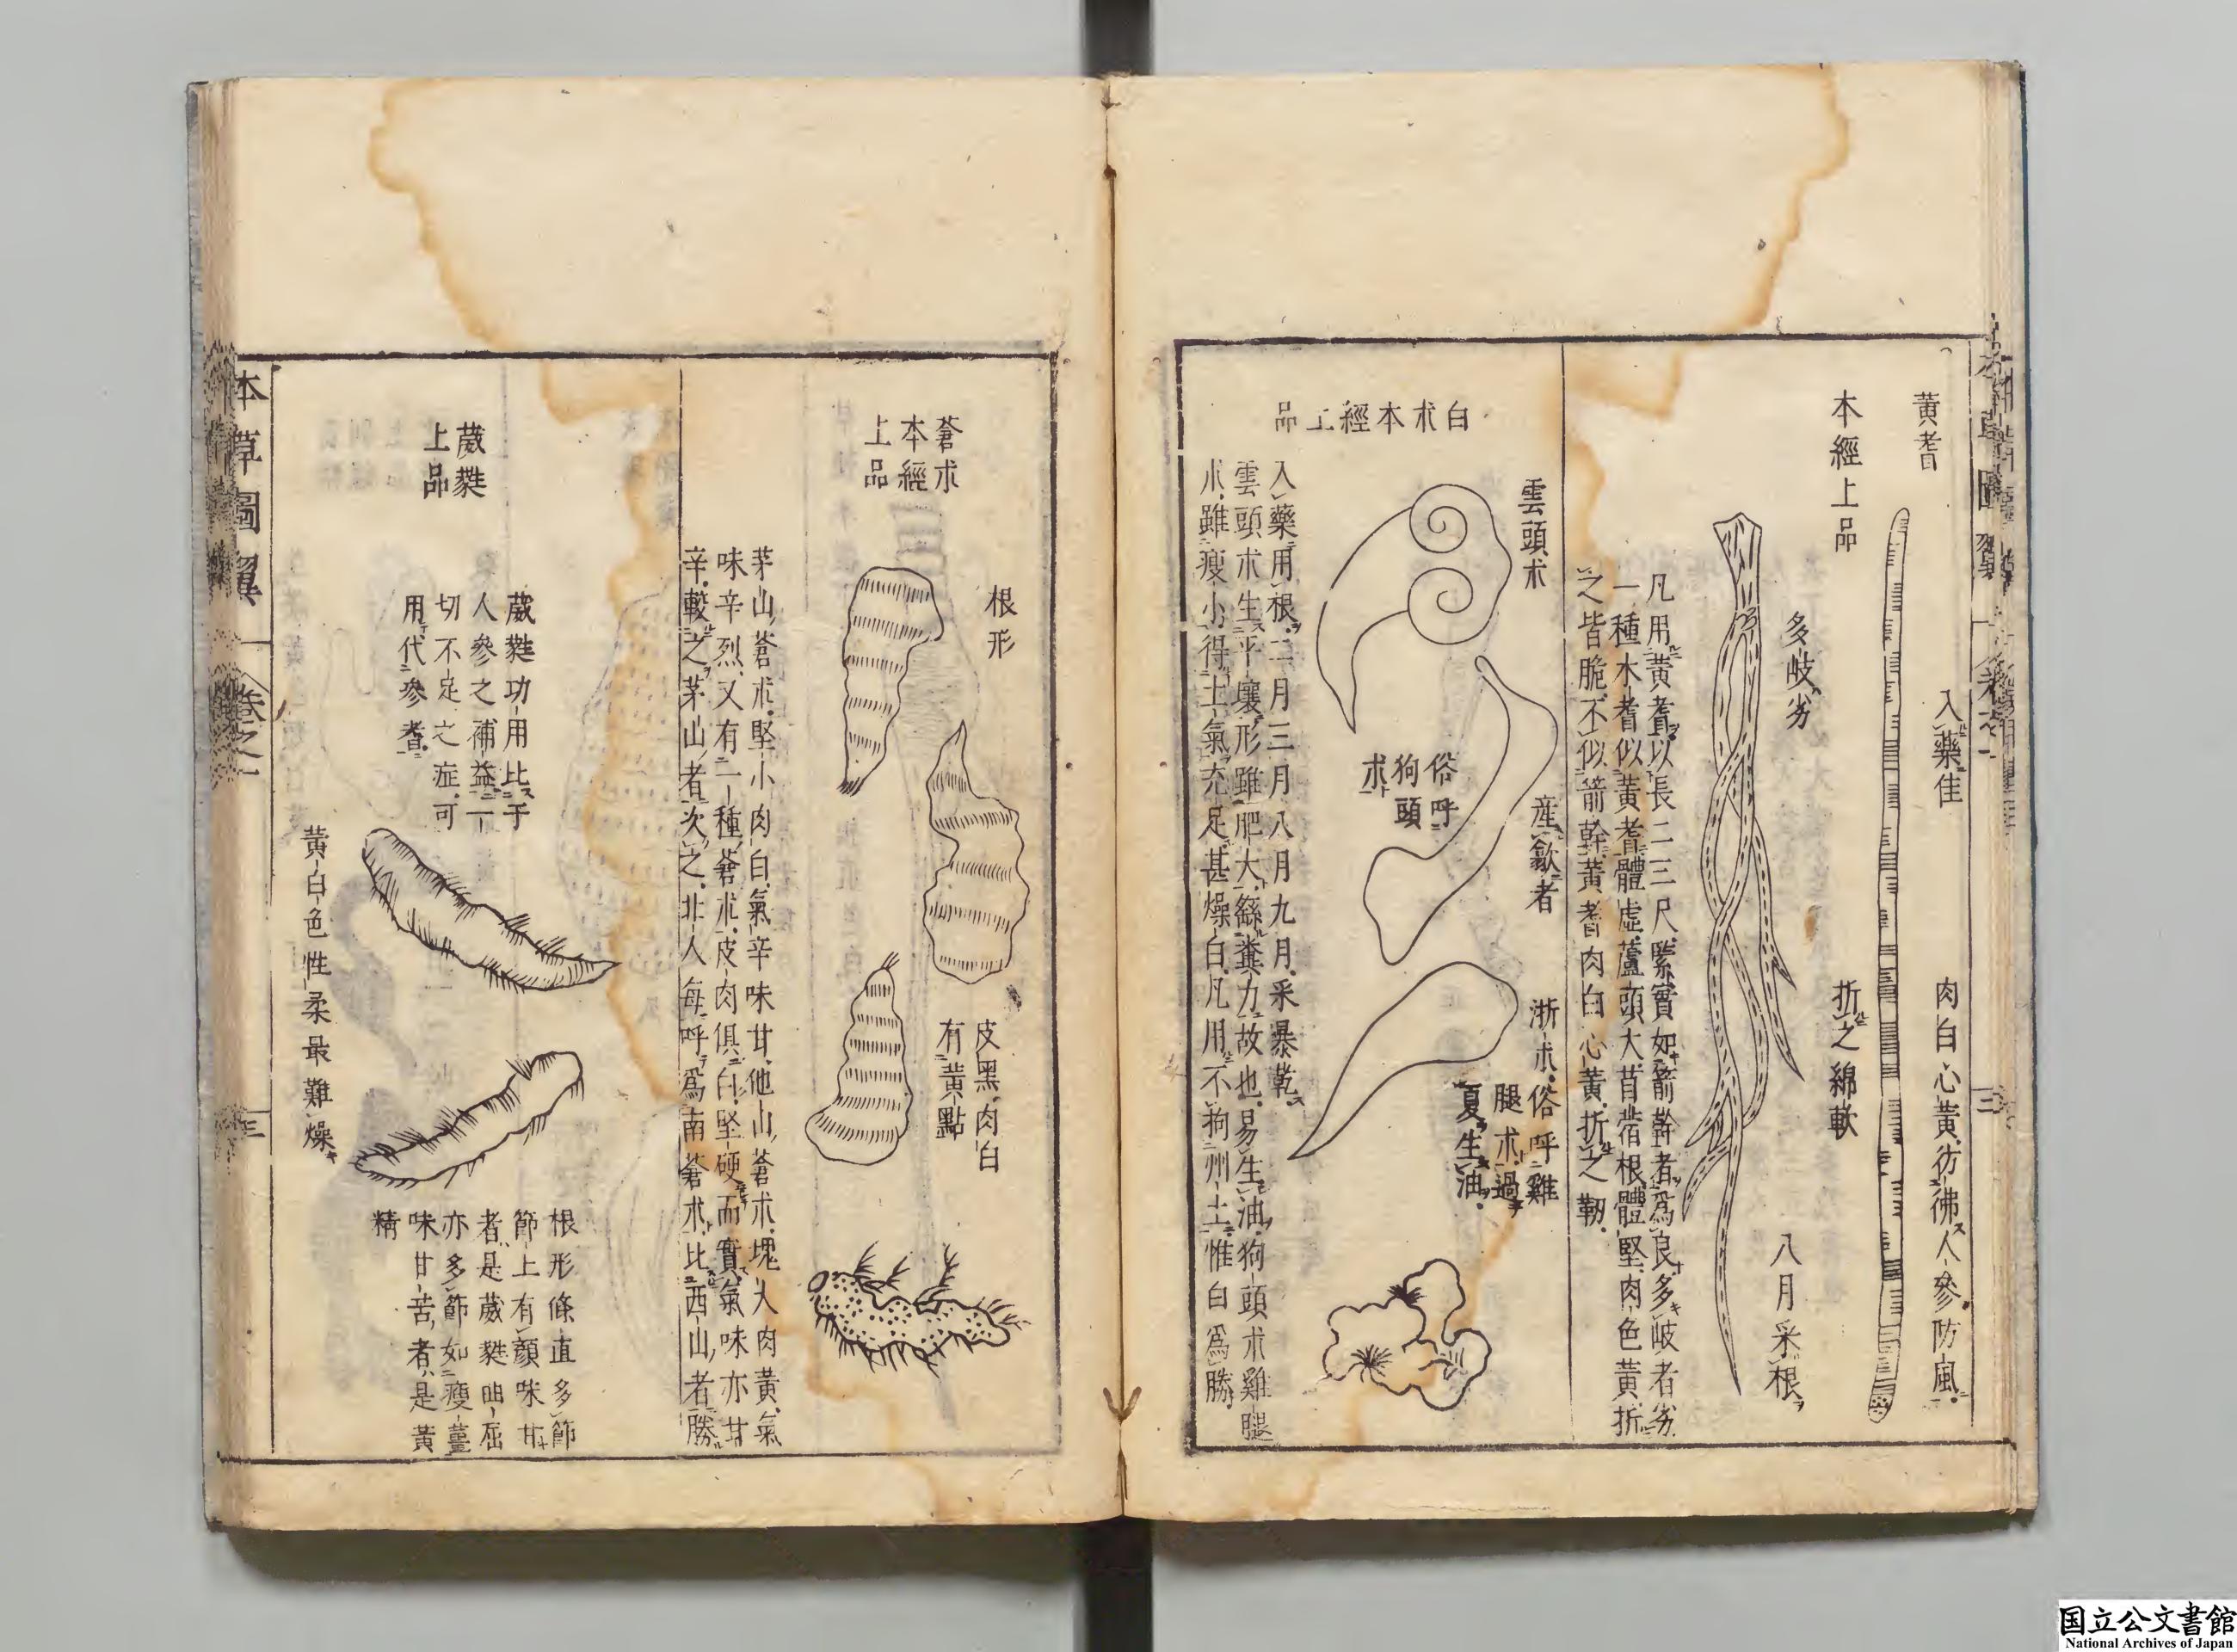 黃耆
本經上品
入藥佳
肉白心黃彷彿人參防風
折之綿軟
多岐劣
八月采根
凡用黃耆以長二三尺緊實如箭幹者爲良多岐者劣
一種木耆似黃耆體虛蘆頭大苜蓿根體堅肉色黃折
之皆脆不似箭幹黃耆肉白心黃折之軔
白朮本經上品
雲頭朮
產歙者
俗呼
狗頭
朮
浙朮俗呼雞
腿朮過
夏生油
入藥用根二月三月八月九月采暴乾
雲頭朮生平壤形雖肥大繇糞力故也易生油狗頭朮雞腿
朮雖瘦小得土氣充足甚燥白凡用不狗州土惟白爲勝
蒼朮
本經
上品
根形
皮黑肉白
有黃點
茅山蒼朮堅小肉白氣辛味甘他山蒼朮塊大肉黃氣
味辛烈又有一種蒼朮皮肉俱白堅硬而實氣味亦甘
辛較之茅山者次之北人每呼爲南蒼朮比西山者勝
葳蕤
上品
葳蕤功用比于
人參之補益一
切不足之症可
用代參耆
黃白色性柔最難燥
根形條直多節
節上有鬚味甘
者是葳蕤曲屈
亦多節如瘦薑
味甘苦者是黃
精
本草圖翼
卷之一
三
国立公文書館
National Archives of Japan